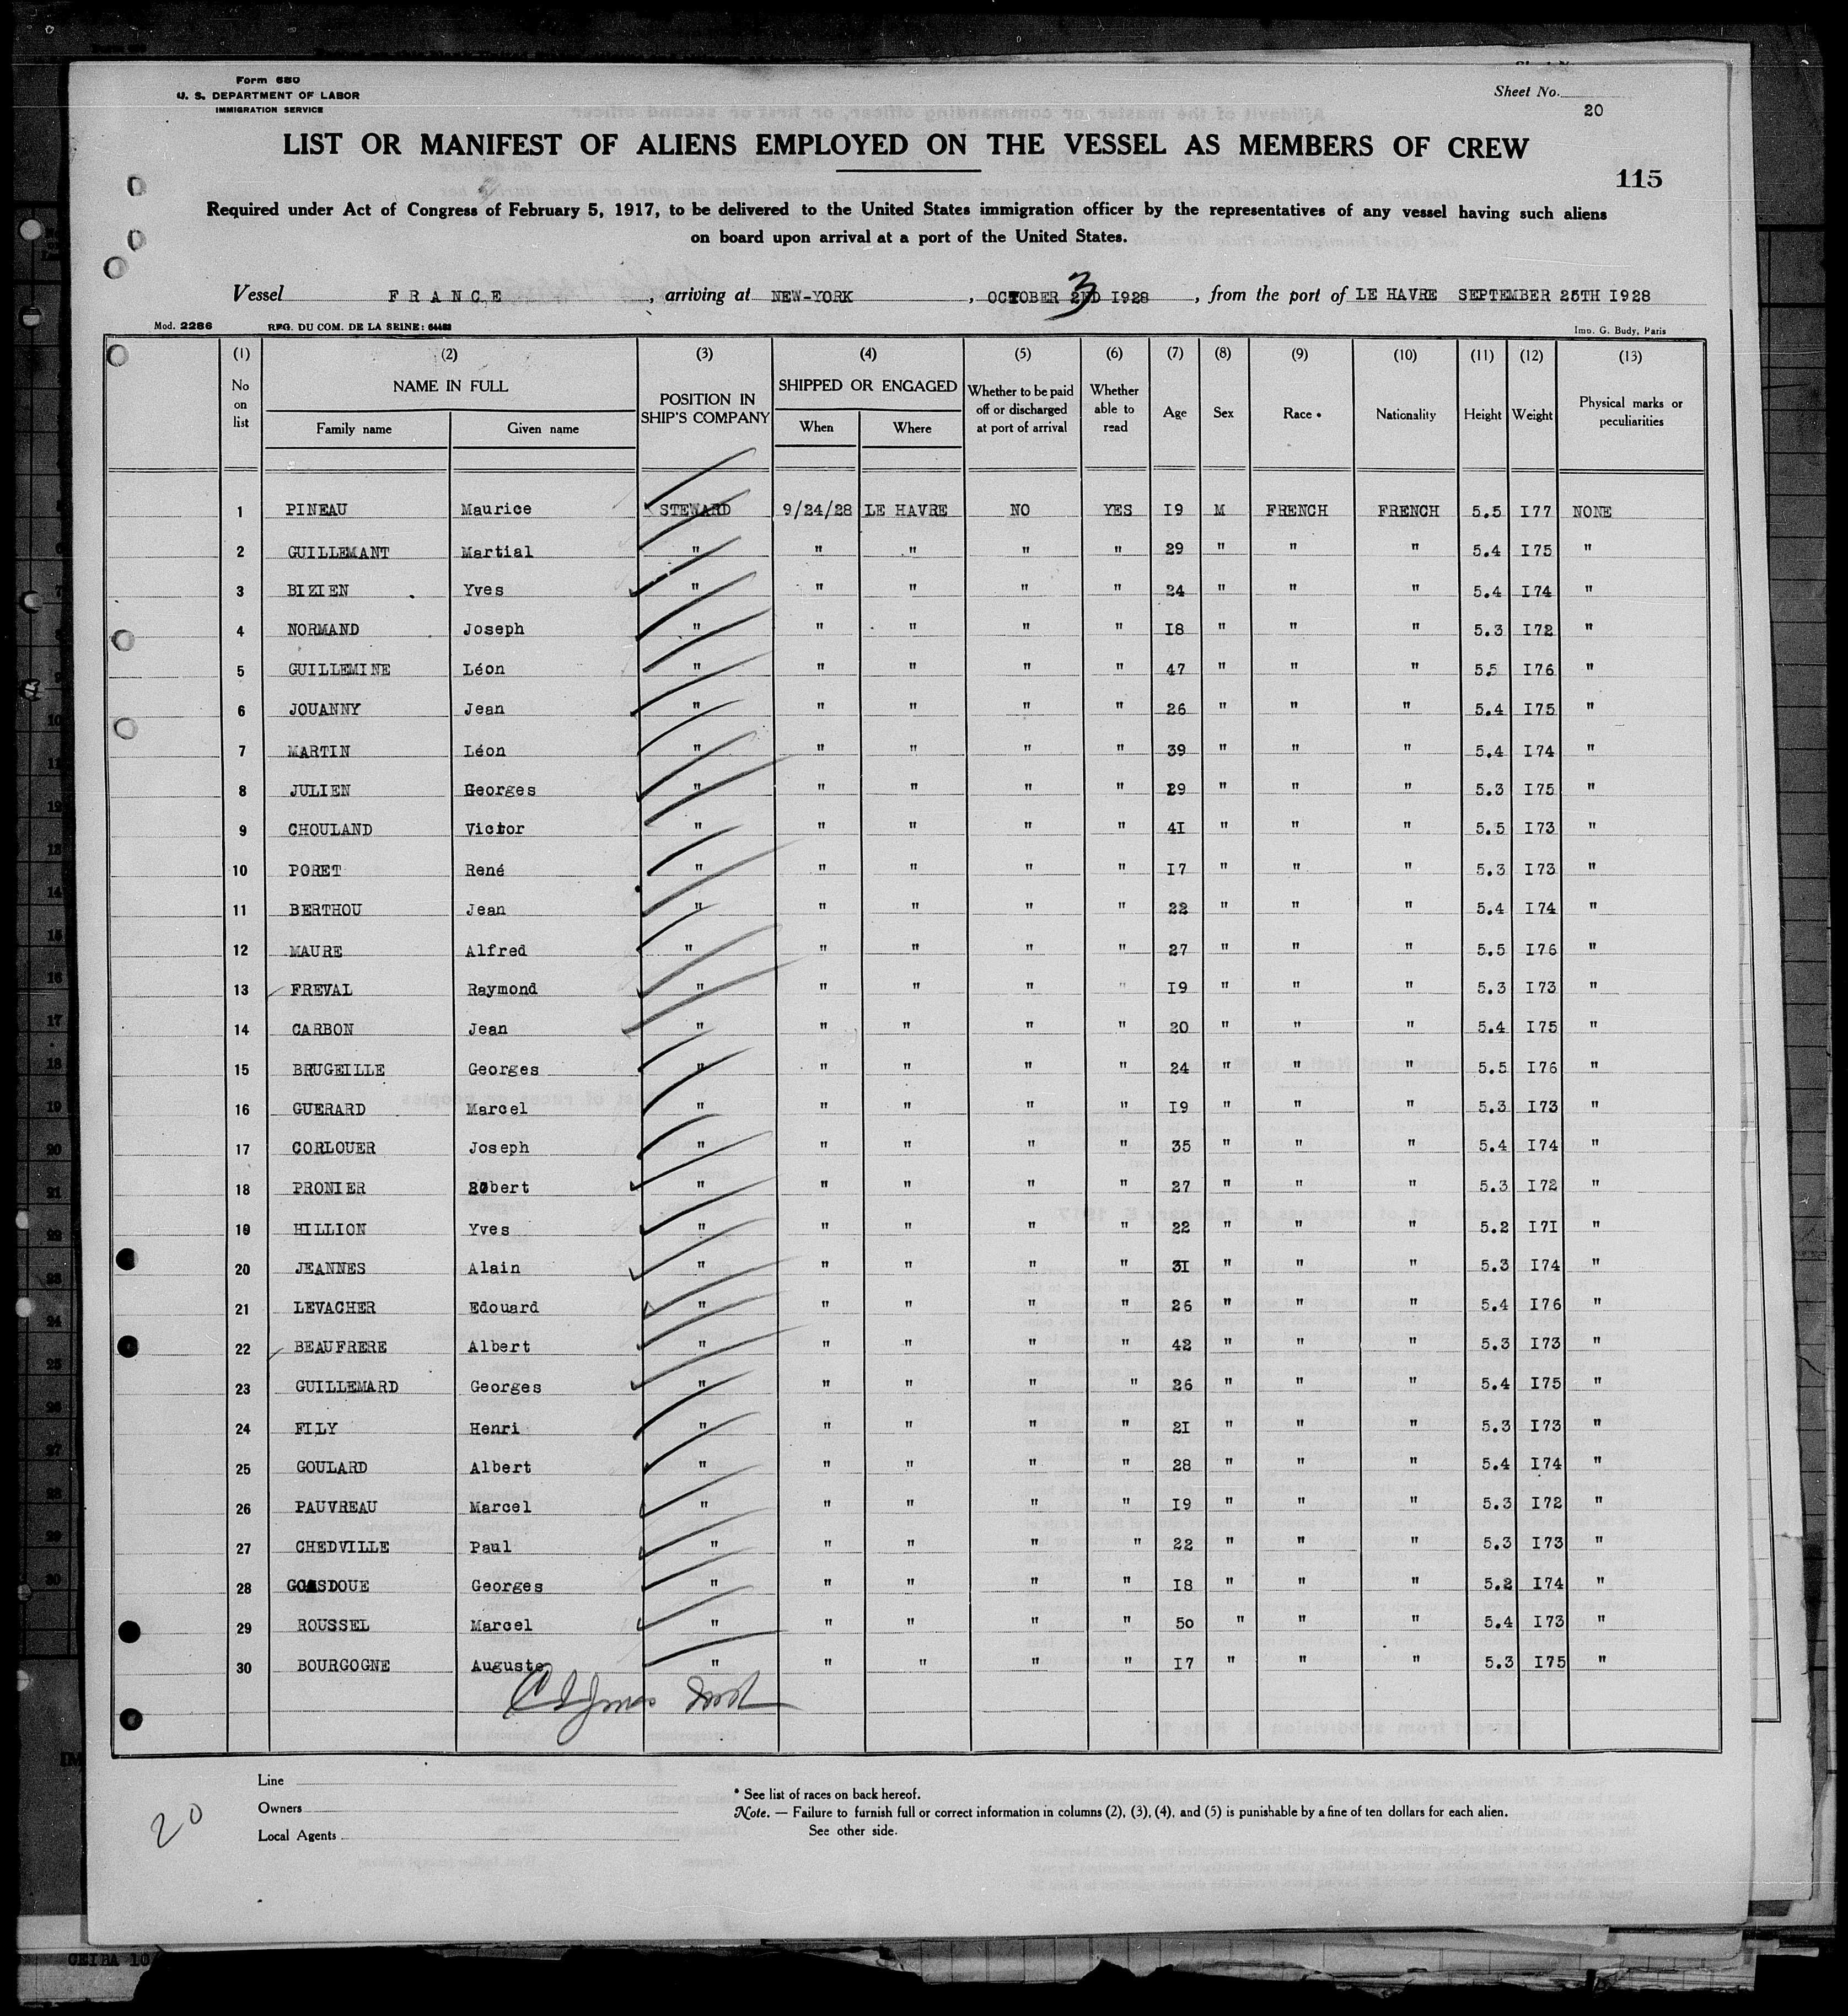 Form 680
U. S. DEPARTMENT OF LABOR
IMMIGRATION SERVICE
Sheet No.
20
LIST OR MANIFEST OF ALIENS EMPLOYED ON THE VESSEL AS MEMBERS OF CREW
115
Required under Act of Congress of February 5, 1917, to be delivered to the United States immigration officer by the representatives of any vessel having such aliens
on board upon arrival at a port of the United States.
Vessel FRANCE, arriving at NEW-YORK, OCTOBER 2ND 1928 3, from the port of LE HAVRE SEPTEMBER 25TH I928
Mod. 2286 REG. DU COM. DE LA SEINE: Imp. G. Budy, Paris
(1) (2) (3) (4) (5) (6) (7) (8) (9) (10) (11) (12) (13)
No on list NAME IN FULL Family name Given name POSITION IN SHIP'S COMPANY SHIPPED OR ENGAGED When Where Whether to be paid off or discharged at port of arrival Whether able to read Age Sex Race * Nationality Height Weight Physical marks or peculiarities
1 PINEAU Maurice STEWARD 9/24/28 LE HAVRE NO YES I9 M FRENCH FRENCH 5.5 I77 NONE
2 GUILLEMANT Martial " " " " " 29 " " " 5.4 I75 "
3 BIZIEN Yves " " " " " 24 " " " 5.4 I74 "
4 NORMAND Joseph " " " " " I8 " " " 5.3 I72 "
5 GUILLEMINE Léon " " " " " 47 " " " 5.5 I76 "
6 JOUANNY Jean " " " " " 26 " " " 5.4 I75 "
7 MARTIN Léon " " " " " 39 " " " 5.4 I74 "
8 JULIEN Georges " " " " " 29 " " " 5.3 I75 "
9 CHOULAND Victor " " " " " 4I " " " 5.5 I73 "
10 PORET René " " " " " I7 " " " 5.3 I73 "
11 BERTHOU Jean " " " " " 22 " " " 5.4 I74 "
12 MAURE Alfred " " " " " 27 " " " 5.5 I76 "
13 FREVAL Raymond " " " " " I9 " " " 5.3 I73 "
14 CARBON Jean " " " " " 20 " " " 5.4 I75 "
15 BRUGEILLE Georges " " " " " 24 " " " 5.5 I76 "
16 GUERARD Marcel " " " " " I9 " " " 5.3 I73 "
17 CORLOUER Joseph " " " " " 35 " " " 5.4 I74 "
18 PRONIER Robert " " " " " 27 " " " 5.3 I72 "
19 HILLION Yves " " " " " 22 " " " 5.2 I7I "
20 JEANNES Alain " " " " " 3I " " " 5.3 I74 "
21 LEVACHER Edouard " " " " " 26 " " " 5.4 I76 "
22 BEAUFRERE Albert " " " " " 42 " " " 5.3 I73 "
23 GUILLEMARD Georges " " " " " 26 " " " 5.4 I75 "
24 FILY Henri " " " " " 2I " " " 5.3 I73 "
25 GOULARD Albert " " " " " 28 " " " 5.4 I74 "
26 PAUVREAU Marcel " " " " " I9 " " " 5.3 I72 "
27 CHEDVILLE Paul " " " " " 22 " " " 5.3 I73 "
28 Georges " " " " " I8 " " " 5.2 I74 "
29 ROUSSEL Marcel " " " " " 50 " " " 5.4 I73 "
30 BOURGOGNE Auguste " " " " " I7 " " " 5.3 I75 "
Line
Owners
Local Agents
* See list of races on back hereof.
Note. — Failure to furnish full or correct information in columns (2), (3), (4), and (5) is punishable by a fine of ten dollars for each alien.
See other side.
20
CEIBA 10